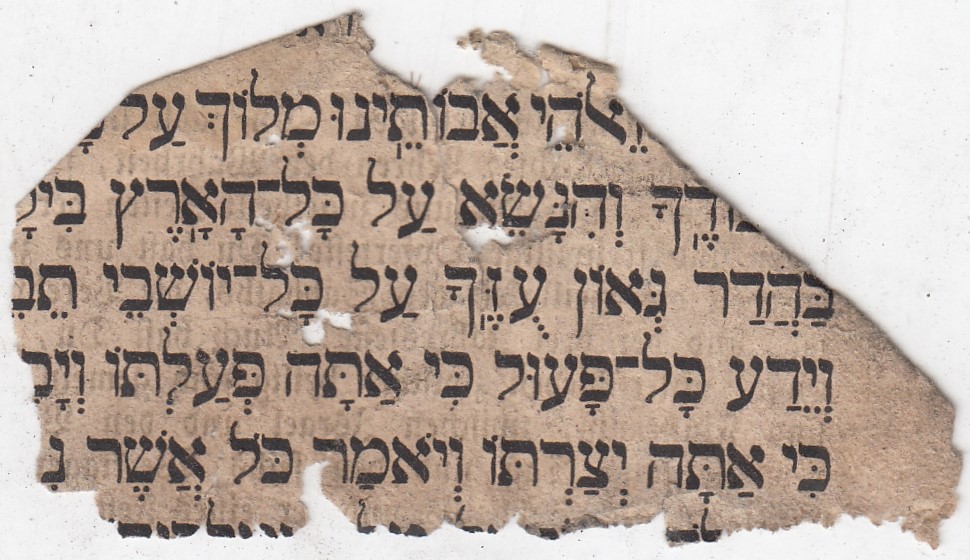 אלֹהֵי אֲבוֹתֵֽינוּ מְלוֹךְ עַל
וֹדֶֽךָ וְהִנָּשֵׂא עַל כָּל־הָאָֽרֶץ בִּיקָ
בַּהֲדַר גְּאוֹן עֻזֶּֽךָ עַל כָּל־יוֹשְׁבֵי תֵבֵ
וְיֵדַע כָּל־פָּעוּל כִּי אַתָּה פְּעַלְתּוֹ וְיָבִ
כִּי אַתָּה יְצַרְתּוֹ וְיֹאמַר כֹּל אֲשֶׁר נ